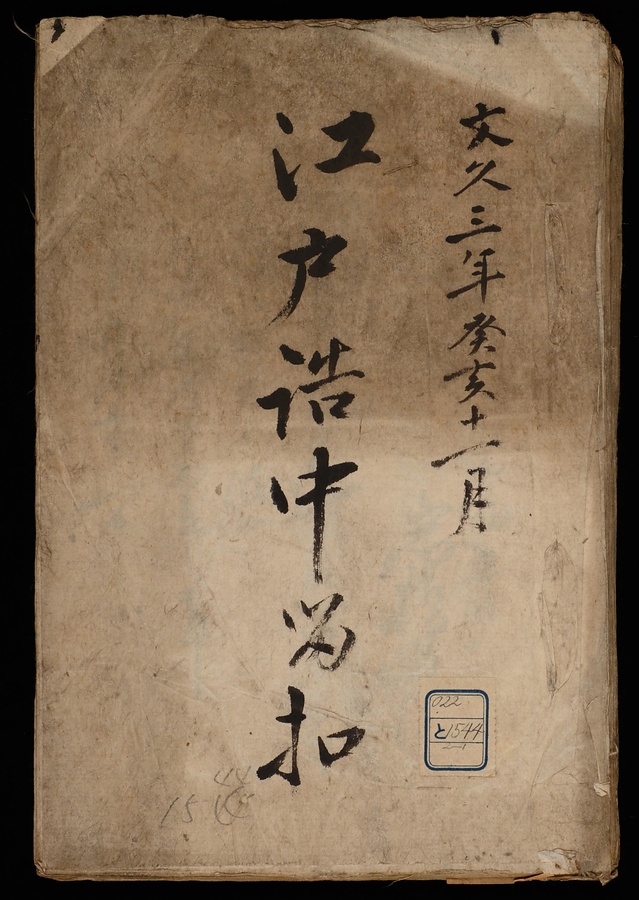 文久三年癸亥十一月
江戸詰中留扣
022
と1544